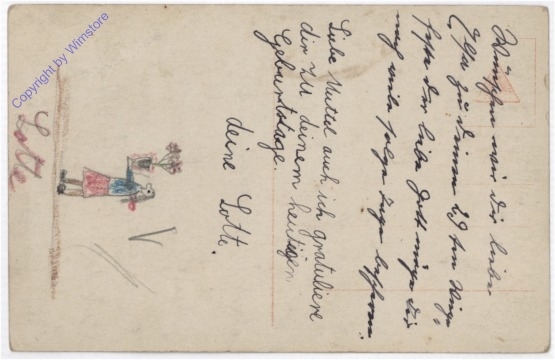 Wünschen wir Dir liebe
zu Deinem 29ten Wiege-
feste der liebe Gott möge Dir
noch viele solche Tage
Liebe Muttel auch ich gratuliere
dir zu deinem heutigen
Geburtstage.
deine Lotte.
Lotte
Copyright by Wimstore